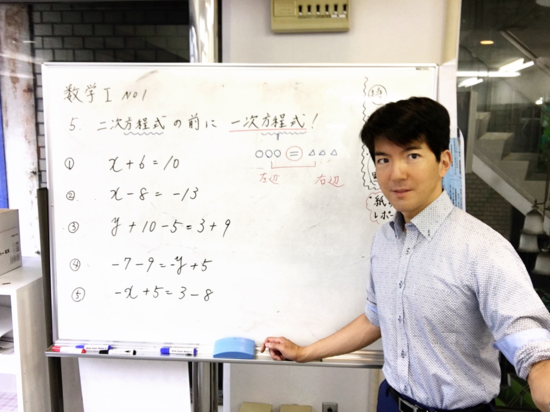 数学I No1
5. 二次方程式の前に 一次方程式!
① x+6=10
○○○=△△△
左辺 右辺
② x-8=-13
③ y+10-5=3+9
④ -7-9=-y+5
⑤ -x+5=3-8